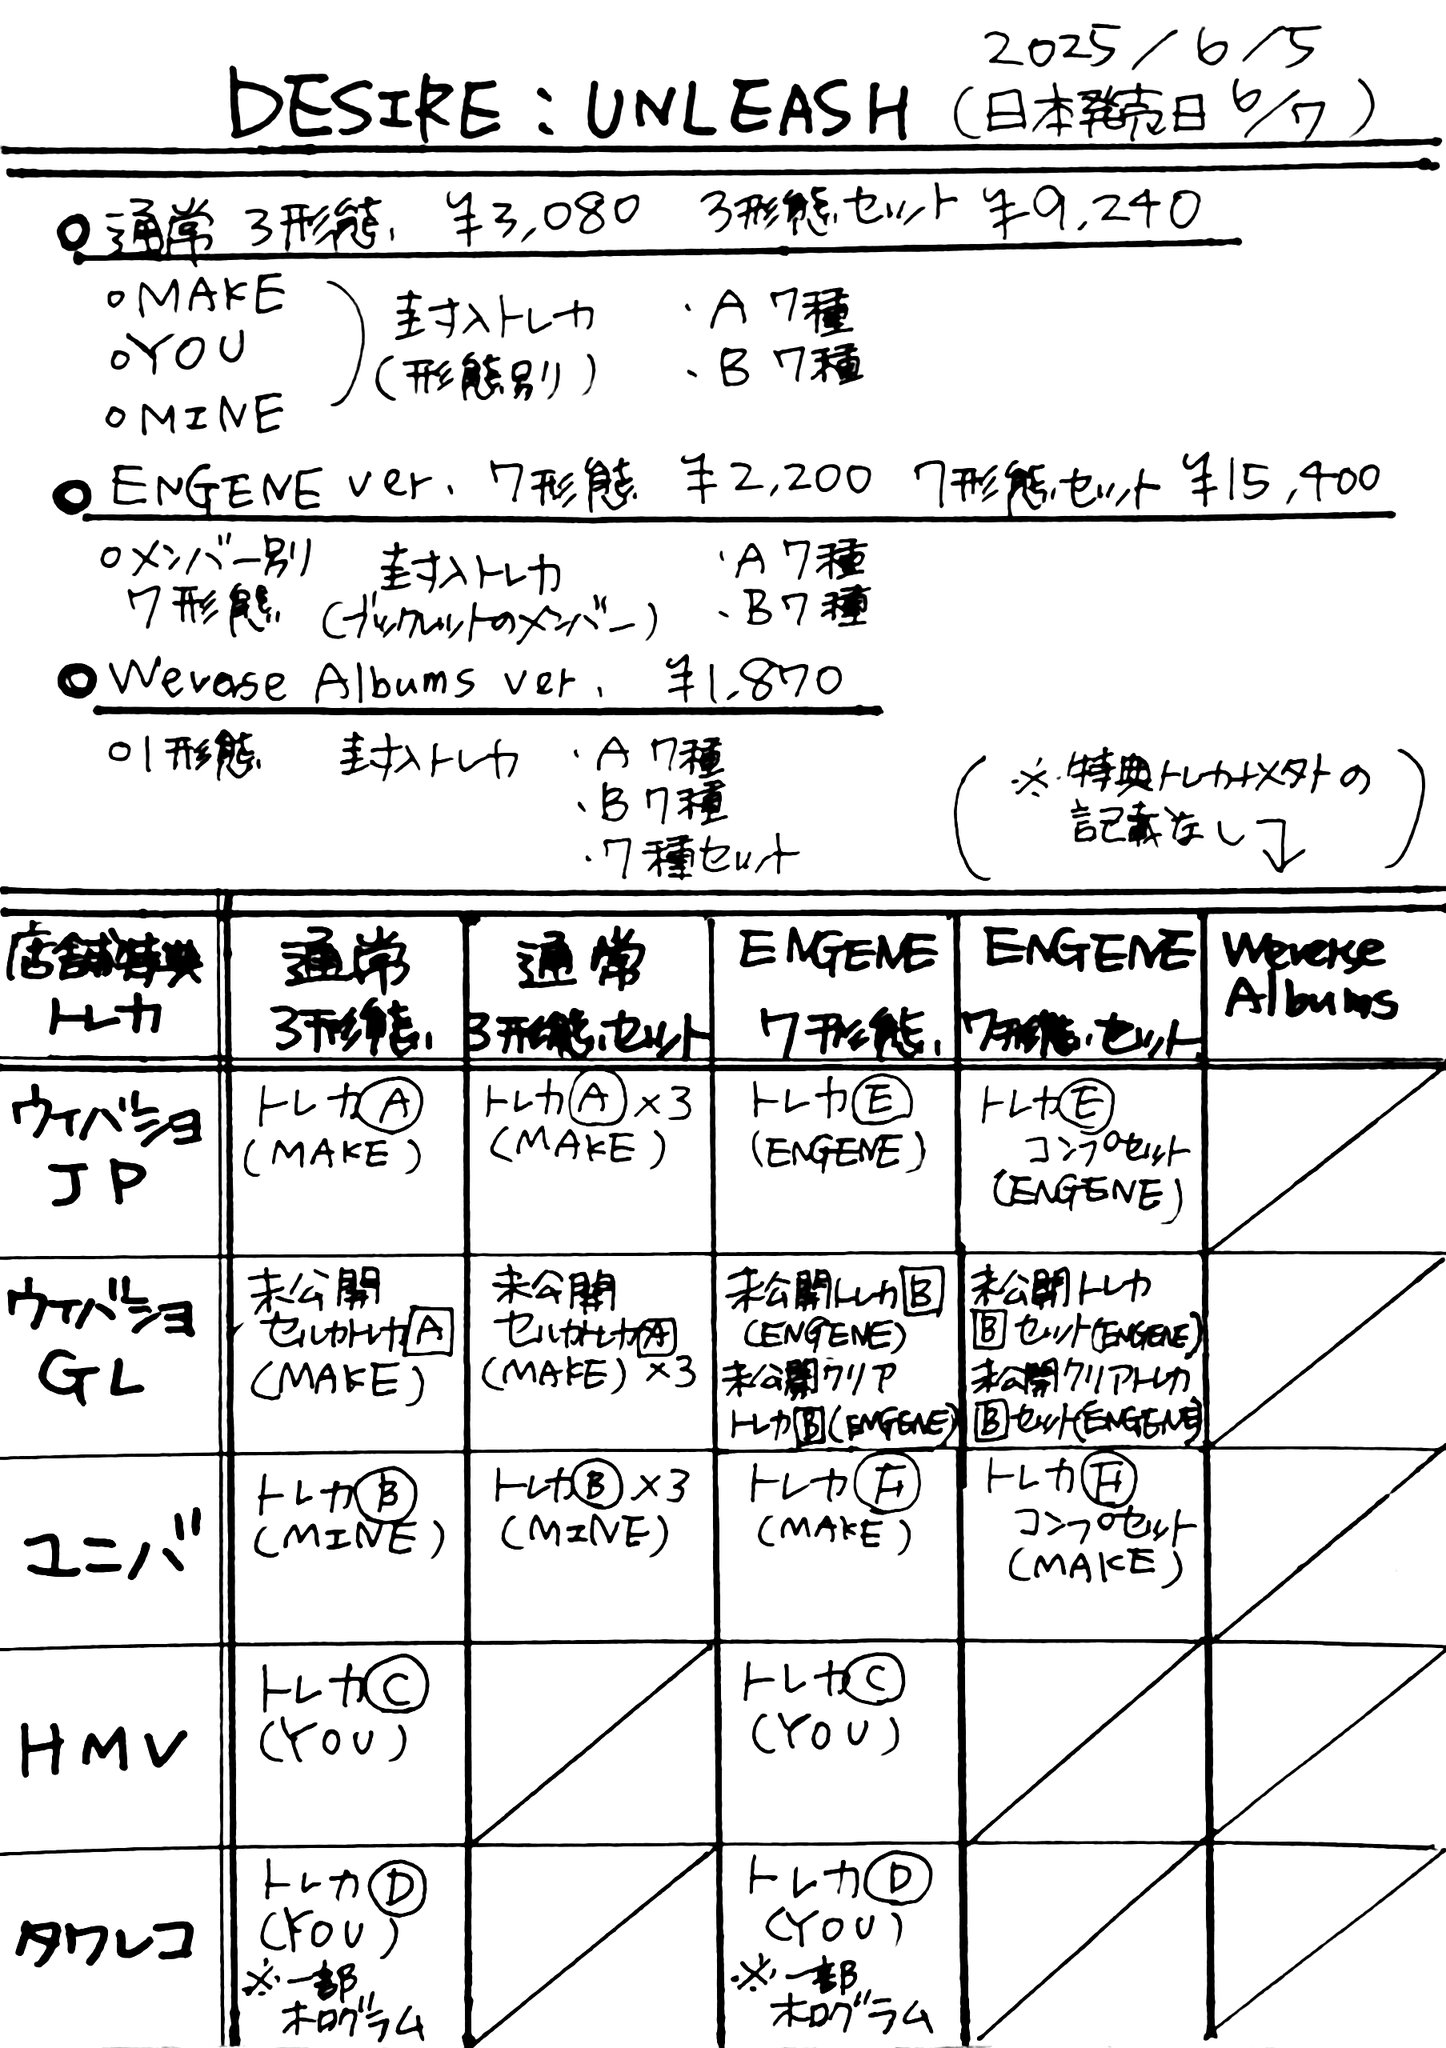 2025/6/5
DESIRE : UNLEASH (日本発売日 6/7)
通常 3形態 ¥3,080 3形態セット ¥9,240
○MAKE
○YOU
○MINE
封入トレカ
(形態別)
・A 7種
・B 7種
ENGENE ver. 7形態 ¥2,200 7形態セット ¥15,400
○メンバー別
7形態
封入トレカ
(ブックレットのメンバー)
・A 7種
・B 7種
Wevase Albums ver. ¥1,870
○1形態 封入トレカ
・A 7種
・B 7種
・7種セット
(※特典トレカ+メタトの
記載なし)
店舗特典
トレカ
通常
3形態
通常
3形態セット
ENGENE
7形態
ENGENE
7形態セット
Weverse
Albums
ウィバショ
JP
トレカⒶ
(MAKE)
トレカⒶ×3
(MAKE)
トレカⒺ
(ENGENE)
トレカⒺ
コンプセット
(ENGENE)
ウィバショ
GL
未公開
セルカトレカA
(MAKE)
未公開
セルカトレカA
(MAKE)×3
未公開トレカB
(ENGENE)
未公開クリア
トレカB(ENGENE)
未公開トレカ
Bセット(ENGENE)
未公開クリアトレカ
Bセット(ENGENE)
ユニバ
トレカⒷ
(MINE)
トレカⒷ×3
(MINE)
トレカⒻ
(MAKE)
トレカⒻ
コンプセット
(MAKE)
HMV
トレカⒸ
(YOU)
トレカⒸ
(YOU)
タワレコ
トレカⒹ
(YOU)
※一部
ホログラム
トレカⒹ
(YOU)
※一部
ホログラム